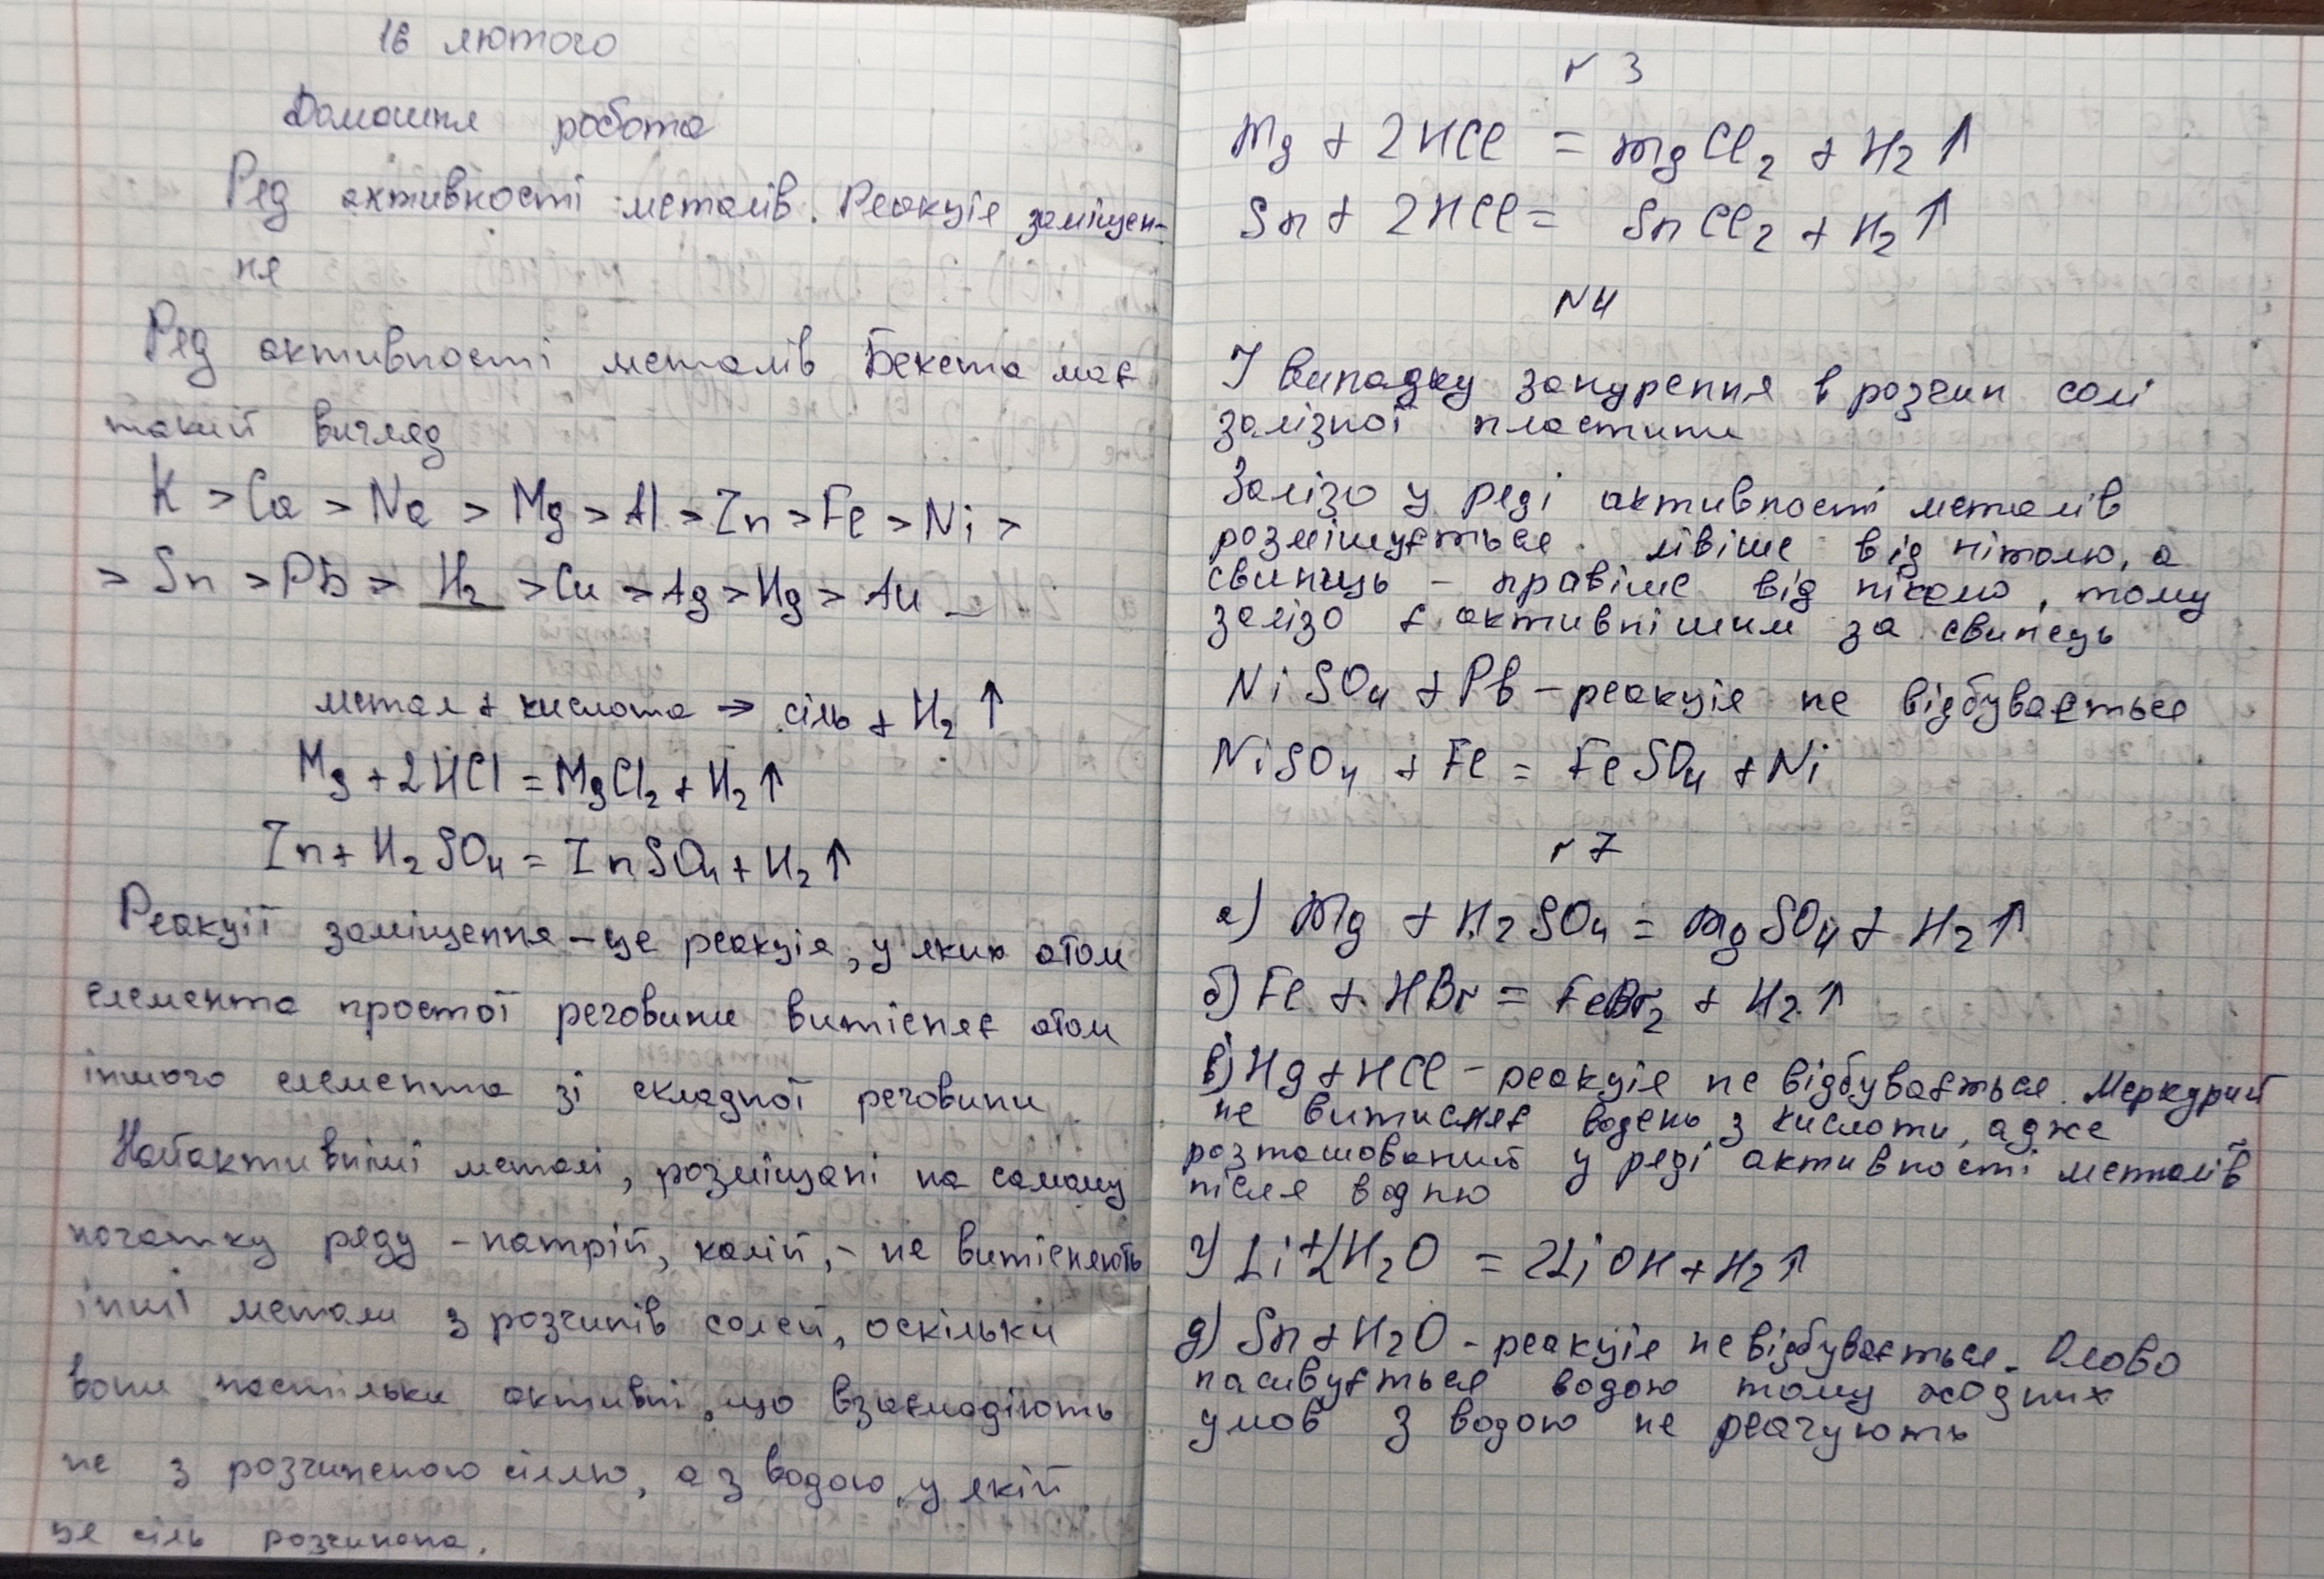 16 лютого
Домашня робота
Ряд активності металів. Реакція заміщен-
ня
Ряд активності металів Бекета має
такий вигляд
K > Ca > Na > Mg > Al > Zn > Fe > Ni >
> Sn > Pb > H₂ > Cu > Ag > Hg > Au
метал + кислота → сіль + H₂ ↑
Mg + 2HCl = MgCl₂ + H₂ ↑
Zn + H₂SO₄ = ZnSO₄ + H₂ ↑
Реакції заміщення – це реакція, у якию атом
елемента простої речовини витісняє атом
іншого елемента зі складної речовини
Найактивніші металі, розміщані на самому
початку ряду – натрій, калій, – не витісняють
інші метали з розчинів солей, оскільки
вони настільки активні, що взаємодіють
не з розчиненою сіллю, а з водою, у якій
ця сіль розчинена.
N 3
Mg + 2HCl = MgCl₂ + H₂ ↑
Sn + 2HCl = SnCl₂ + H₂ ↑
N4
У випадку занурення в розчин солі
залізної пластини
Залізо у ряді активності металів
розміщується лівіше від нітолю, а
свинець – правіше від ніколю, тому
залізо є активнішим за свинець
NiSO₄ + Pb – реакція не відбувається
NiSO₄ + Fe = FeSO₄ + Ni
N 7
а) Mg + H₂SO₄ = MgSO₄ + H₂ ↑
б) Fe + HBr = FeBr₂ + H₂ ↑
в) Hg + HCl – реакція не відбувається. Меркурий
не витисняє водень з кислоти, адже
розташований у ряді активності металів
після водню
г) Li + 2H₂O = 2LiOH + H₂ ↑
д) Sn + H₂O – реакція не відбувається. Олово
пасивується водою тому жодних
умов з водою не реагують